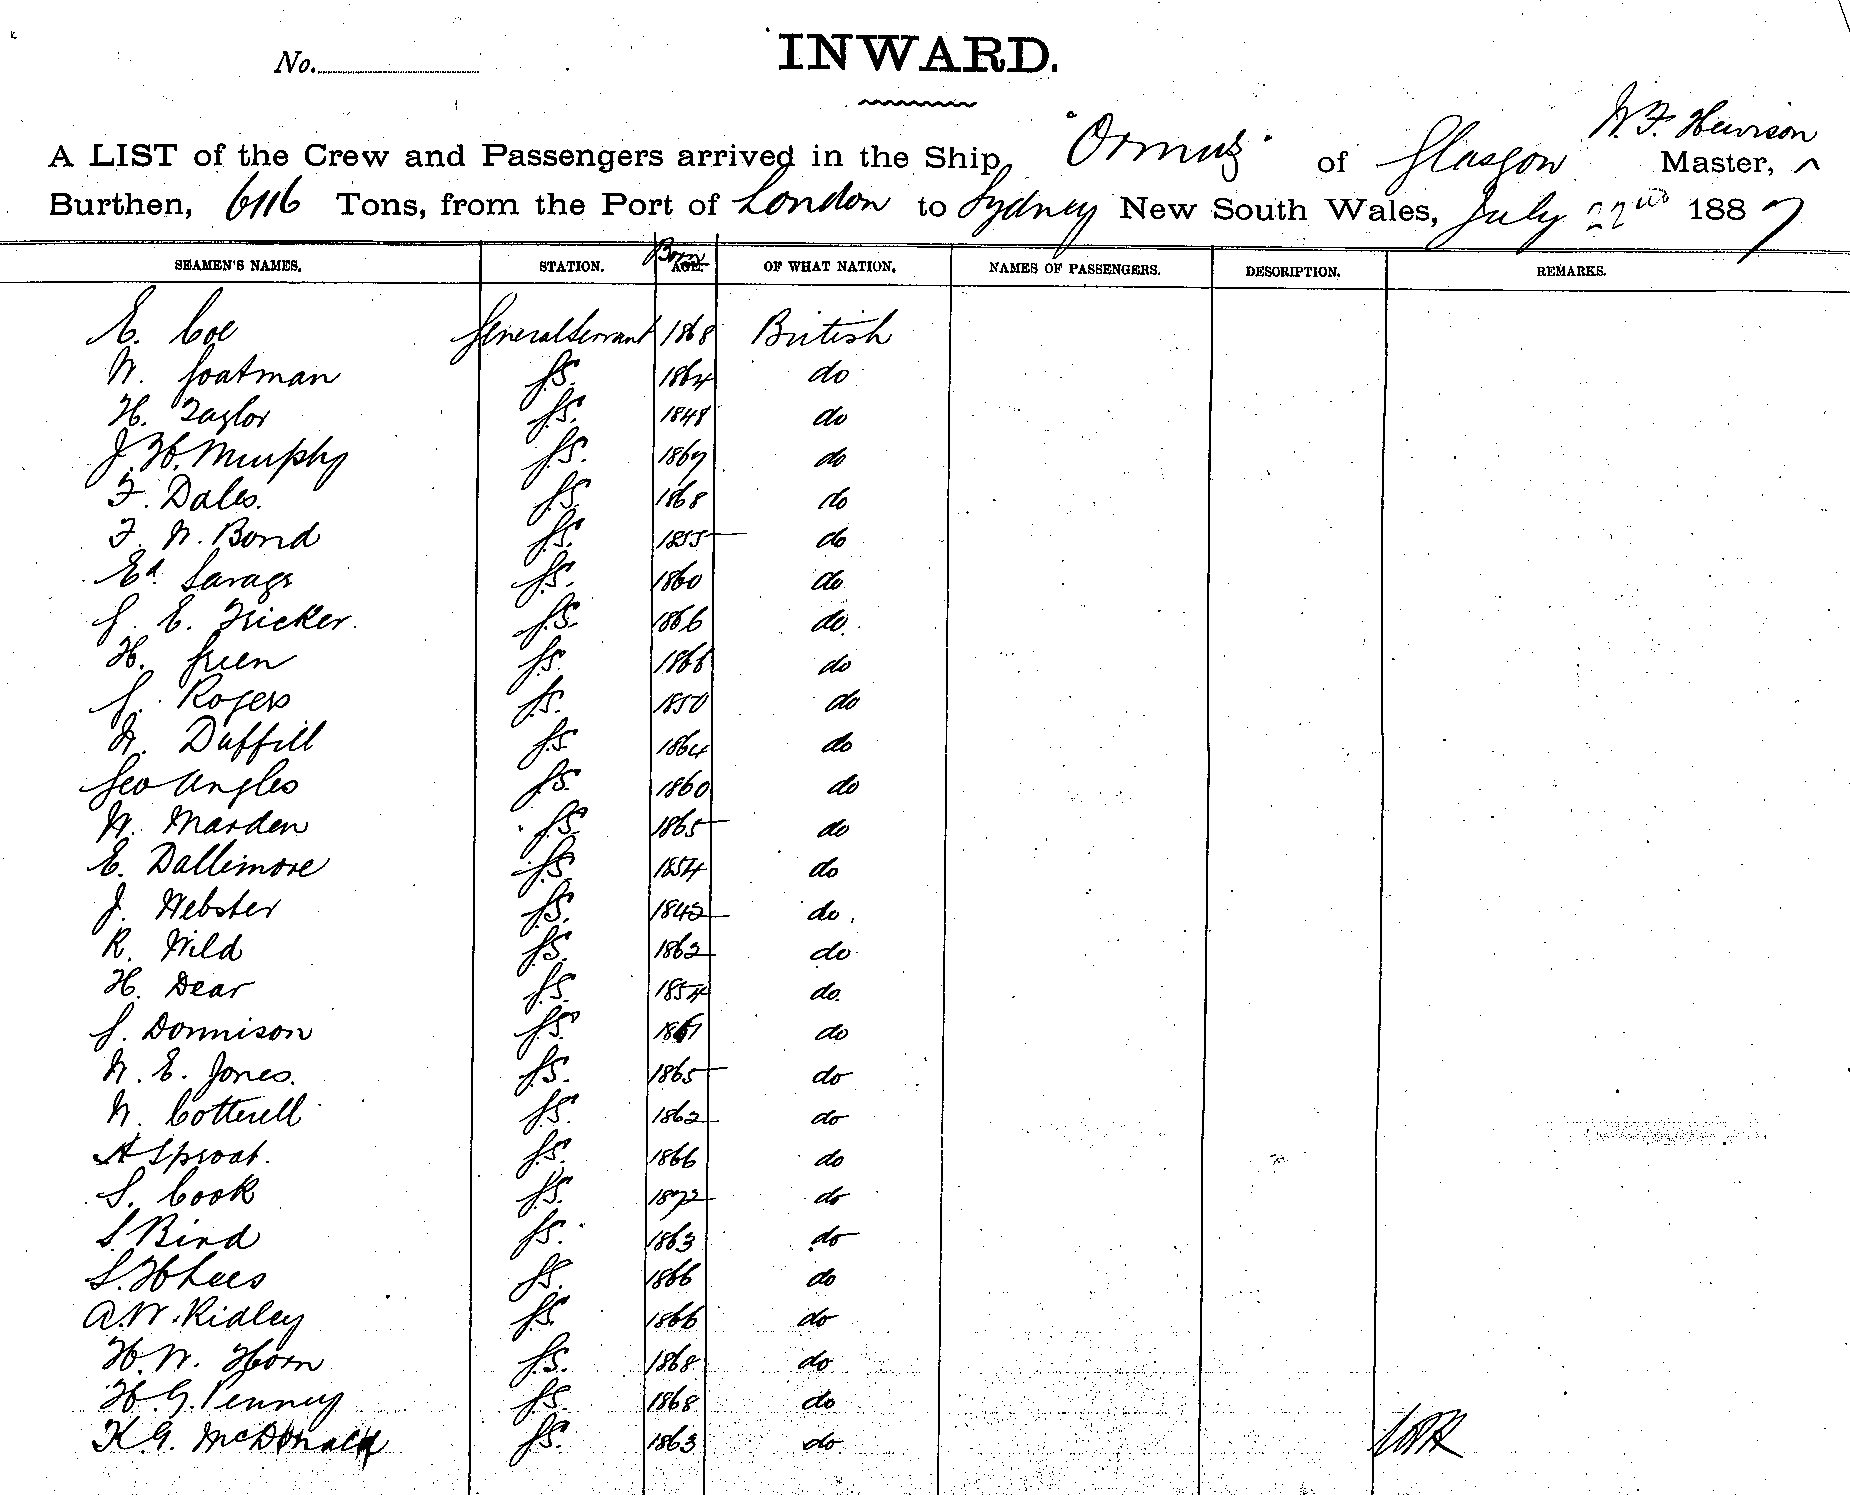 No.
INWARD.
A LIST of the Crew and Passengers arrived in the Ship, "Ormuz" of Glasgow W. F. Hewison Master, ^
Burthen, 6116 Tons, from the Port of London to Sydney New South Wales, July 22nd 1887
SEAMEN'S NAMES. STATION. Born AGE. OF WHAT NATION. NAMES OF PASSENGERS. DESCRIPTION. REMARKS.
E. Coe General Servant 1868 British
W. Goatman G.S. 1864 do
H. Taylor G.S. 1848 do
J. H. Murphy G.S. 1867 do
F. Dales. G.S. 1868 do
F. W. Bond G.S. 1855 do
Ed. Savage G.S. 1860 do
G. E. Tricker. G.S. 1866 do
H. Green G.S. 1866 do
G. Rogers G.S. 1850 do
W. Duffill G.S. 1864 do
Geo Angles G.S. 1860 do
W. Marden G.S. 1865 do
E. Dallimore G.S. 1854 do
J. Webster G.S. 1842 do
R. Wild G.S. 1862 do
H. Dear G.S. 1854 do
G. Donnison G.S. do
W. E. Jones. G.S. 1865 do
W. Cotterell G.S. 1862 do
A Sproat. G.S. 1866 do
S. Cook G.S. 1872 do
S. Bird G.S. 1863 do
S. H Lees G.S. 1866 do
A. W. Ridley G.S. 1866 do
H. W. Horn G.S. 1868 do
H. G. Penney G.S. 1868 do
K. G. McDonald G.S. 1863 do